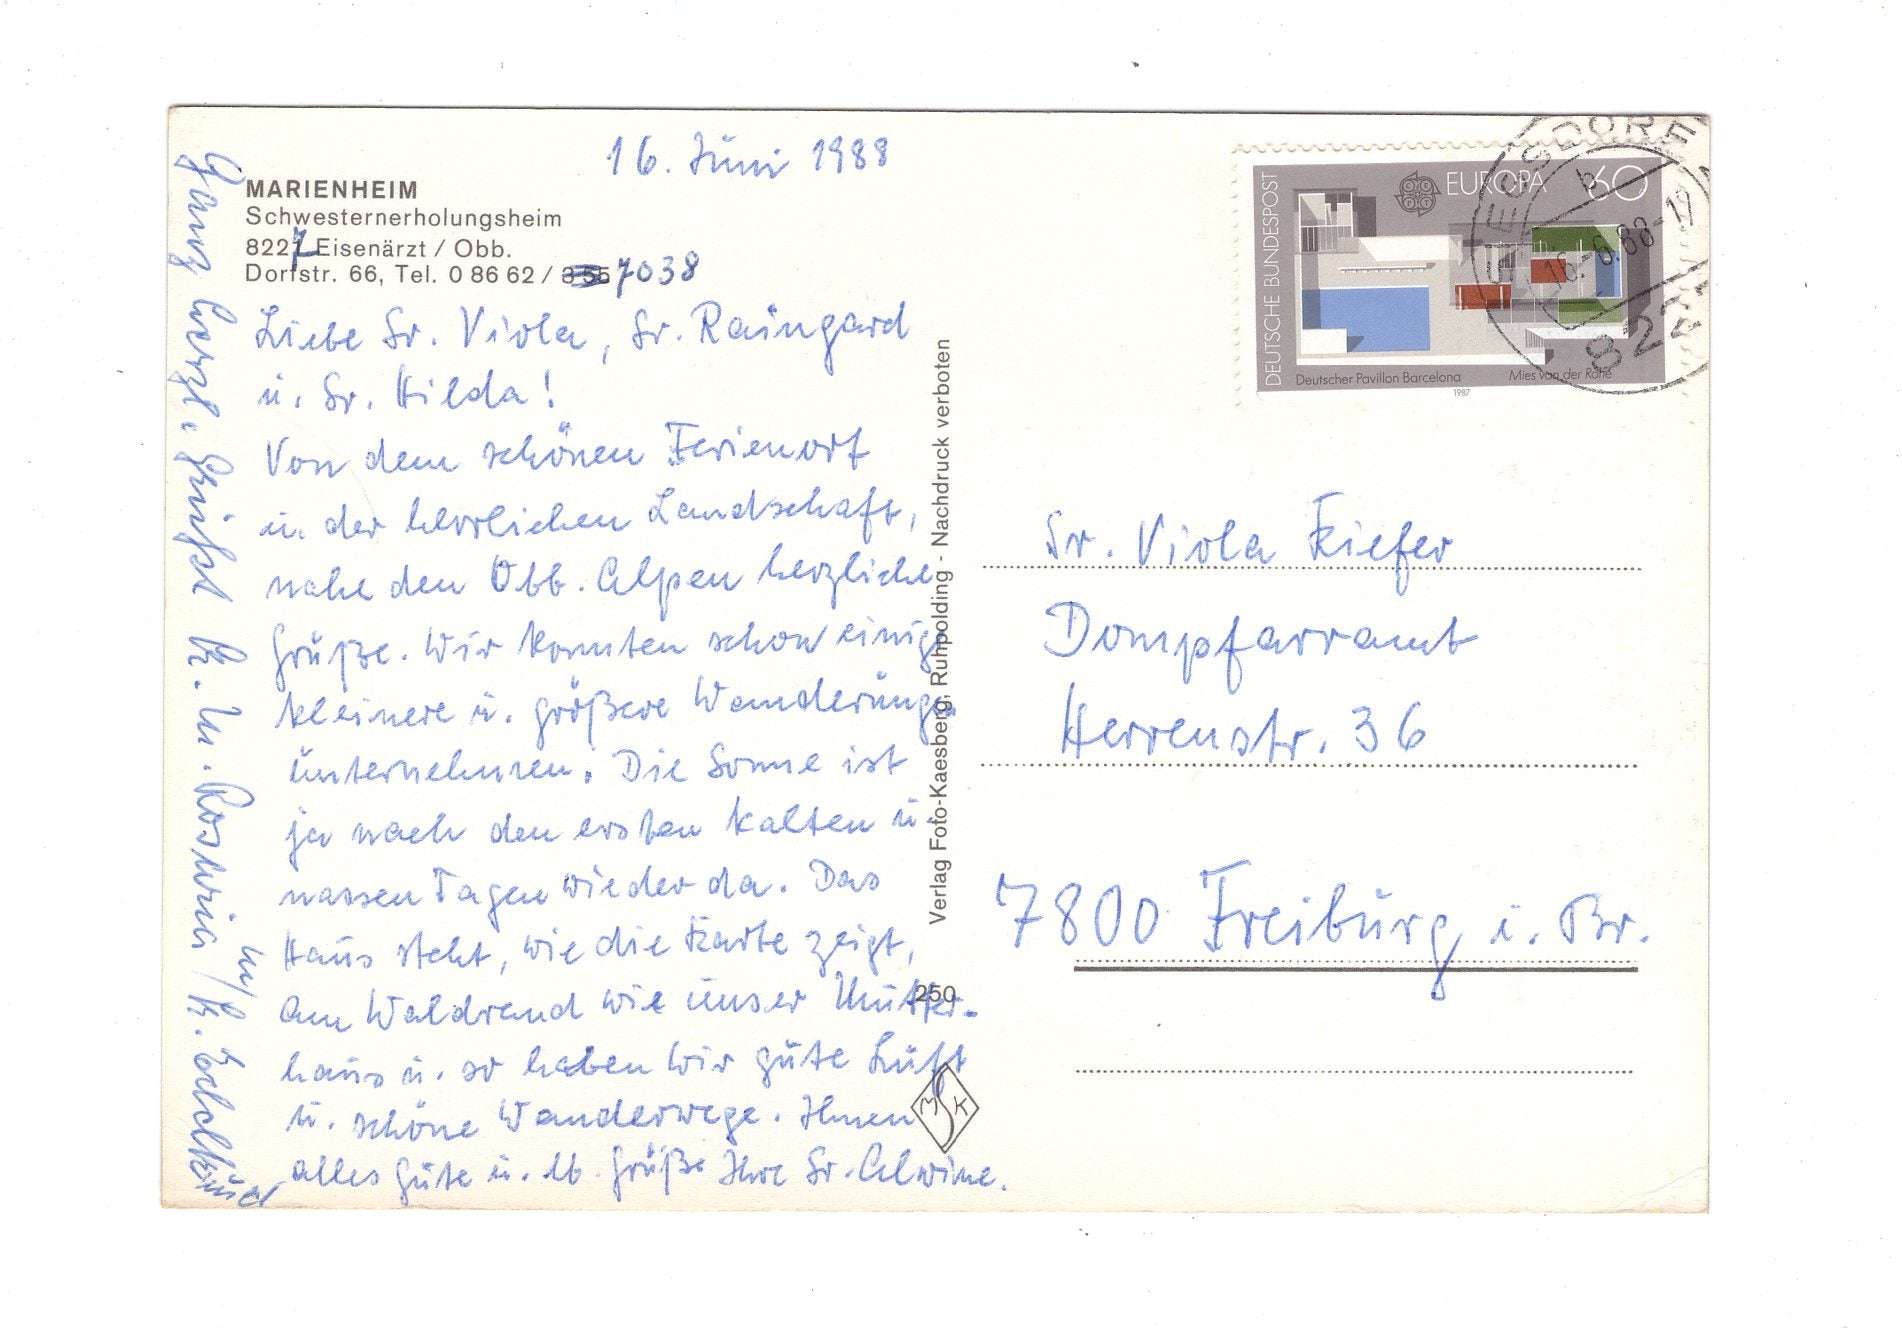 16. Juni 1988
MARIENHEIM
Schwesternerholungsheim
8227 Eisenärzt / Obb.
Dorfstr. 66, Tel. 0 86 62 / 7038
Liebe Sr. Viola, Sr. Raingard
u. Sr. Hilda!
Von dem schönen Ferienort
in der herrlichen Landschaft,
nahe den Obb. Alpen herzliche
Grüße. Wir konnten schon einige
kleinere u. größere Wanderungen
unternehmen. Die Sonne ist
ja nach den ersten kalten u.
nassen Tagen wieder da. Das
Haus steht, wie die Karte zeigt,
am Waldrand wie unser Mutter-
haus u. so haben wir gute Luft
u. schöne Wanderwege. Ihnen
alles Gute u. lb. Grüße Ihre Sr. Alwine.
Ganz herzl. grüßt Sr. M.
Verlag Foto-Kaesberg, Ruhpolding - Nachdruck verboten
250
SK
DEUTSCHE BUNDESPOST
EUROPA 60
CEPT
Deutscher Pavillon Barcelona Mies van der Rohe
1987
SIEGSDORF
b
16.-6.88-19
8227
Sr. Viola Kiefer
Dompfarramt
Herrenstr. 36
7800 Freiburg i. Br.